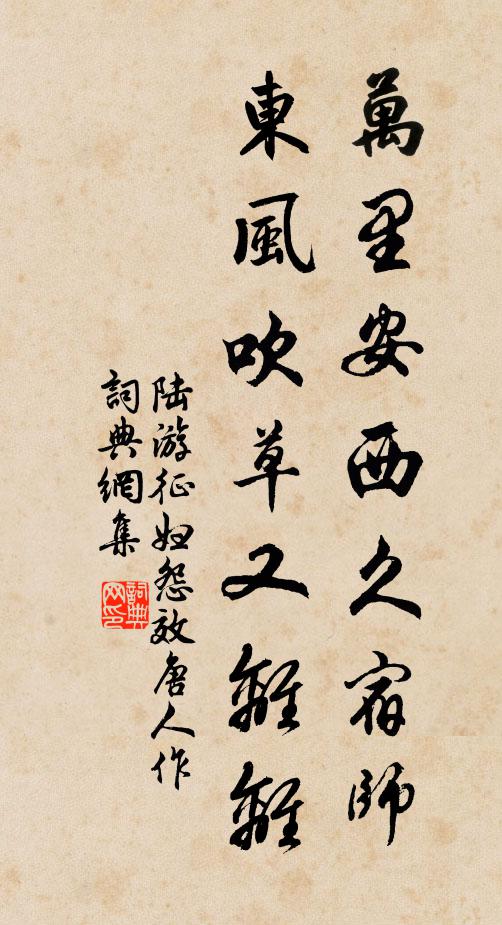 萬里安西久宿師
東風吹草又離離
陆游征妇怨效唐人作
詞典網集
詞典网印